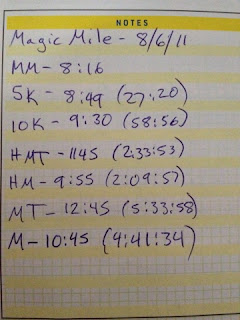 NOTES
Magic Mile - 8/6/11
MM - 8:16
5K - 8:49 (27:20)
10K - 9:30 (58:56)
HMT - 1145 (2:33:53)
HM - 9:55 (2:09:57)
MT - 12:45 (5:33:58)
M - 10:45 (4:41:34)